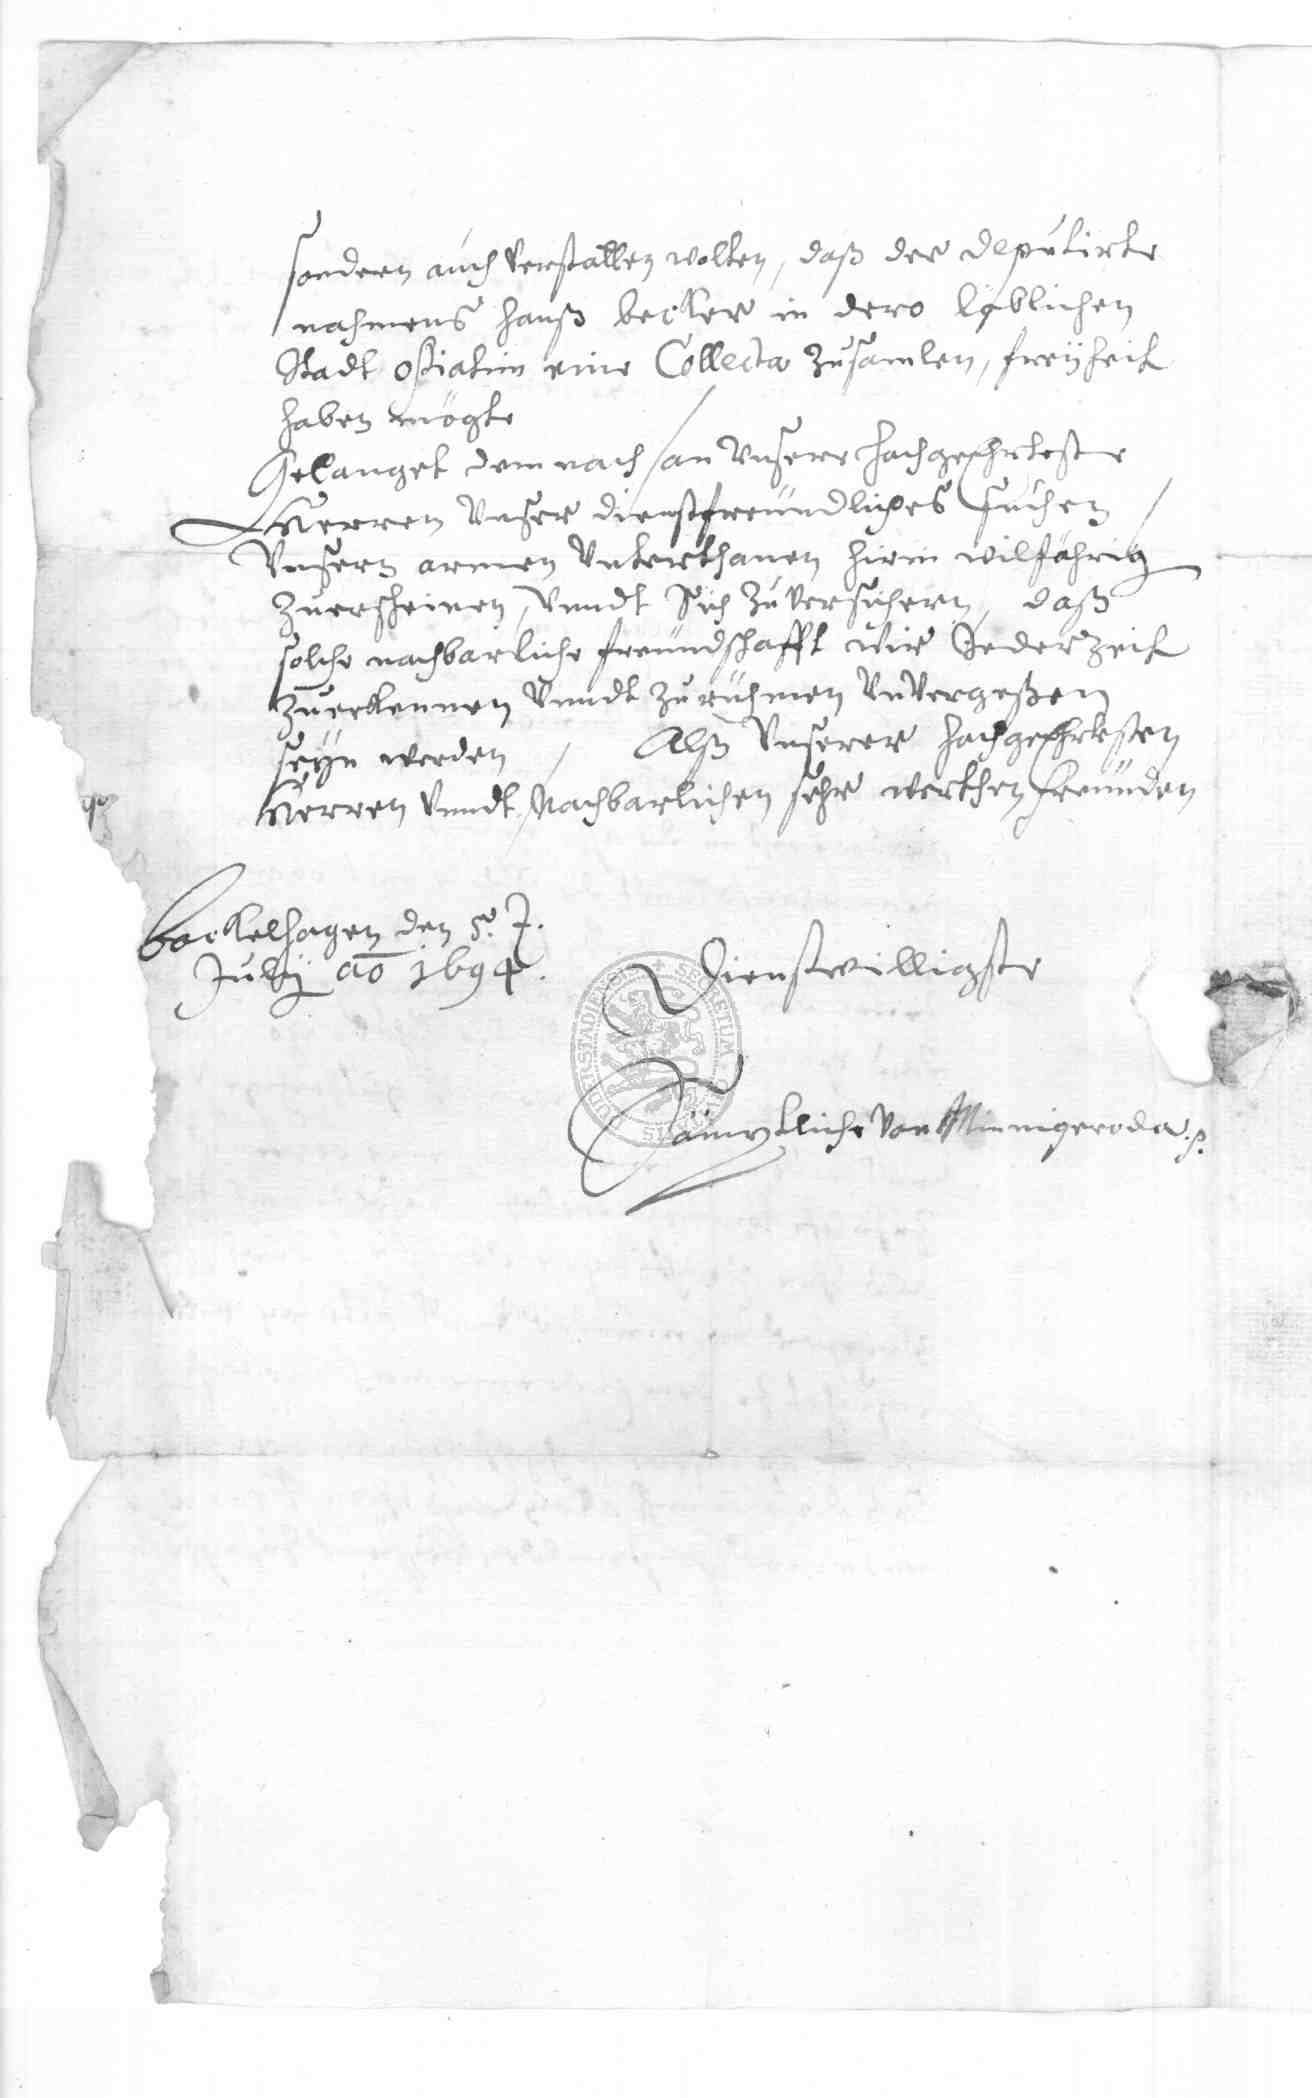 sondern auch verstatten wolten, daß der deputirte
nahmens Hanß becker in dero löblichen
Stadt ostiatim eine Collecta zusamlen, freÿheit
haben mögte
Gelanget demnach an Unsere hochgeehrteste
Herren Unser dienstfreundliches suchen
Unsern armen Unterthanen hirin wilfährig
zuerscheinen, Unndt Sich zuversichern, daß
solche nachbarliche freundschafft wir Jederzeit
zuerkennen Unndt zurühmen Unvergeßen
seÿn werden / Alß Unserer hochgeehrtesten
Herren Unndt Nachbarlichen sehr werthen freunden
Bockelhagen den 5. t.
Julij ao 1694.
Dienstwilligste
Sämptliche Von Minnigeroda
SECRETUM
DUDERSTADIENSIS